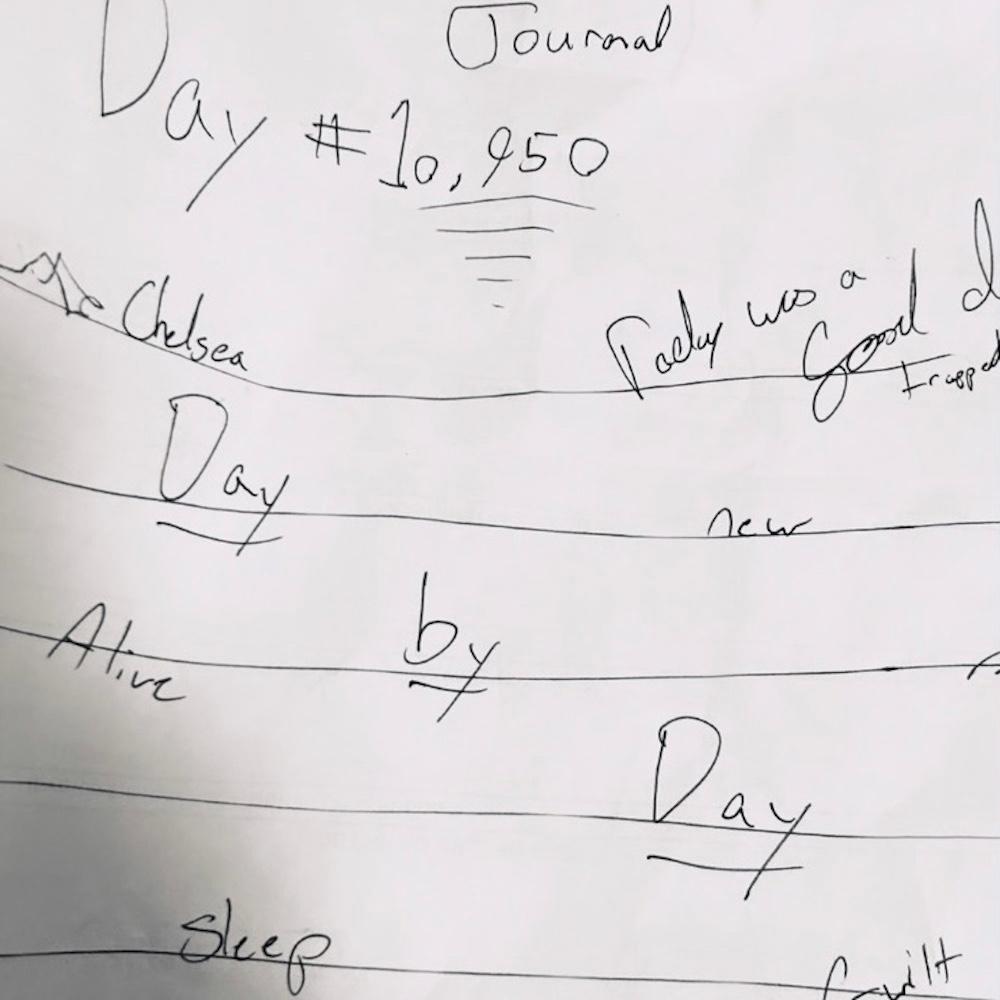 Journal
Day #10,950
Chelsea
Today was a
Good d
Trapped
Day
new
Alive
by
Day
Sleep
Guilt